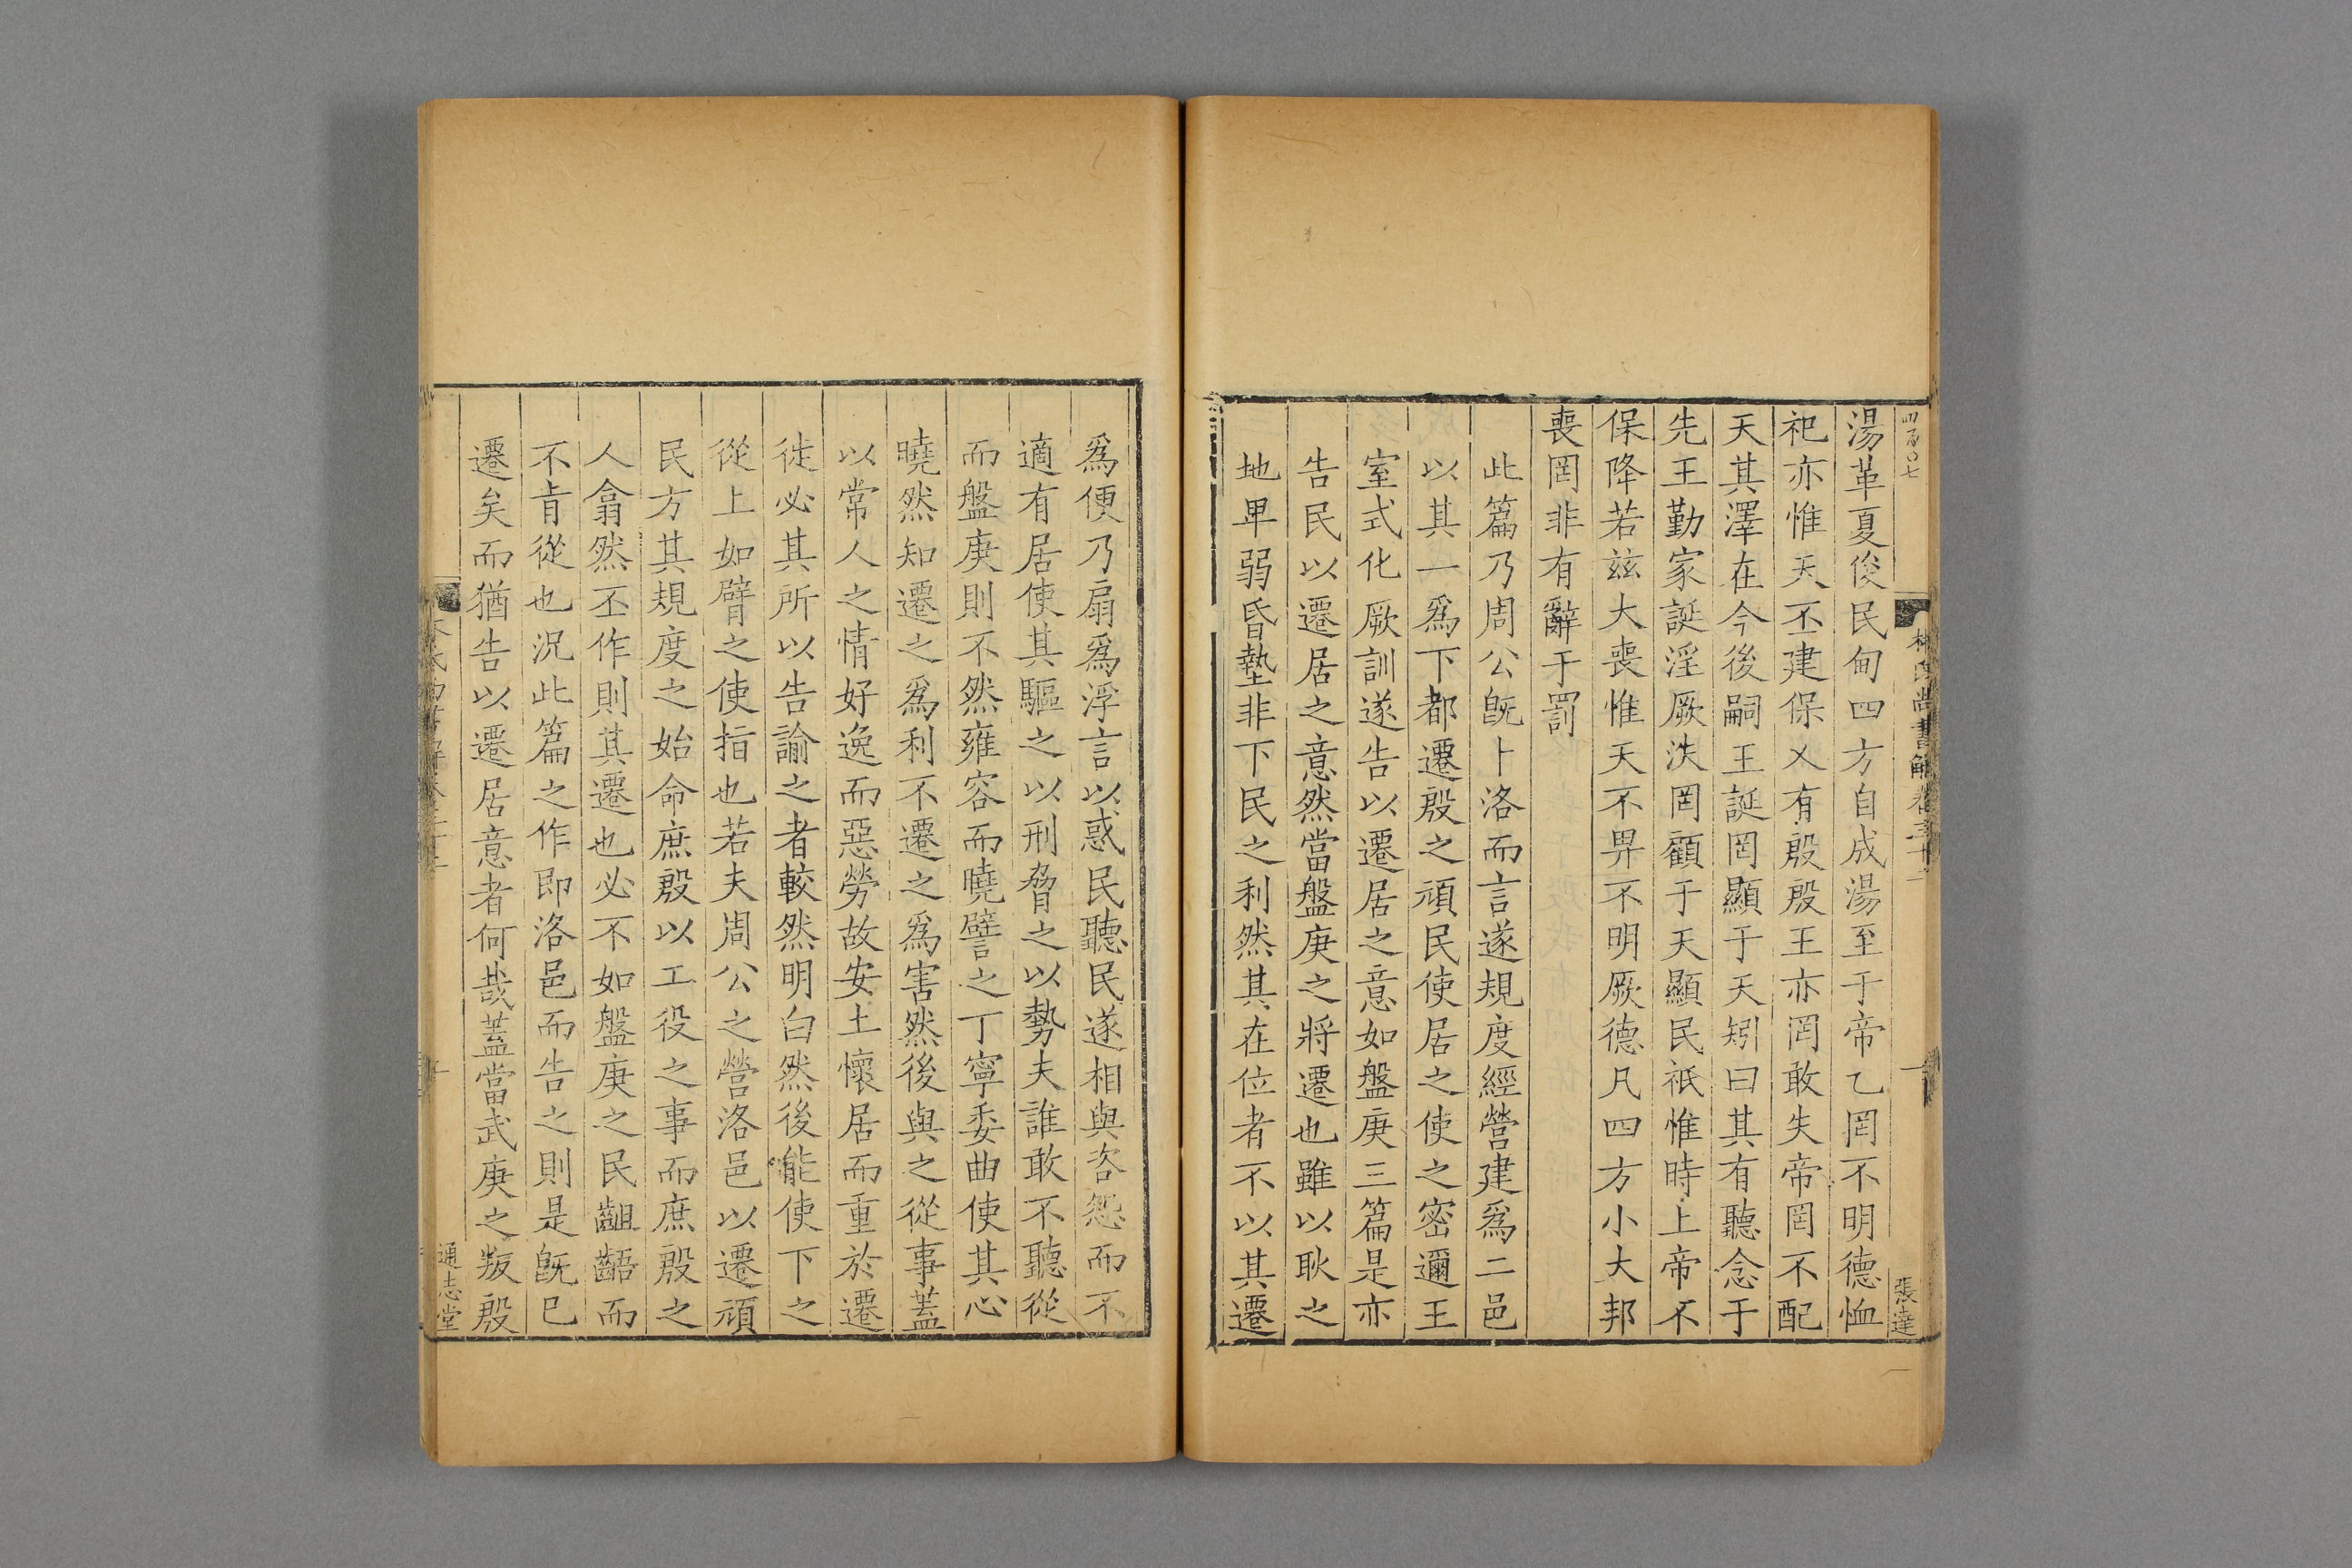 四百〇七
林氏尚書解卷三十一
張達
湯革夏俊民甸四方自成湯至于帝乙罔不明德恤
祀亦惟天丕建保乂有殷殷王亦罔敢失帝罔不配
天其澤在今後嗣王誕罔顯于天矧曰其有聽念于
先王勤家誕淫厥泆罔顧于天顯民祗惟時上帝不
保降若兹大喪惟天不畀不明厥德凡四方小大邦
喪罔非有辭于罰
此篇乃周公旣卜洛而言遂規度經營建爲二邑
以其一爲下都遷殷之頑民使居之使之密邇王
室式化厥訓遂告以遷居之意如盤庚三篇是亦
告民以遷居之意然當盤庚之將遷也雖以耿之
地卑弱昏墊非下民之利然其在位者不以其遷
爲便乃扇爲浮言以惑民聽民遂相與咨怨而不
適有居使其驅之以刑脅之以勢夫誰敢不聽從
而盤庚則不然雍容而曉譬之丁寧委曲使其心
曉然知遷之爲利不遷之爲害然後與之從事蓋
以常人之情好逸而惡勞故安土懷居而重於遷
徙必其所以告諭之者較然明白然後能使下之
從上如臂之使指也若夫周公之營洛邑以遷頑
民方其規度之始命庶殷以工役之事而庶殷之
人翕然丕作則其遷也必不如盤庚之民齟齬而
不肯從也況此篇之作即洛邑而告之則是旣已
遷矣而猶告以遷居意者何哉蓋當武庚之叛殷
通志堂